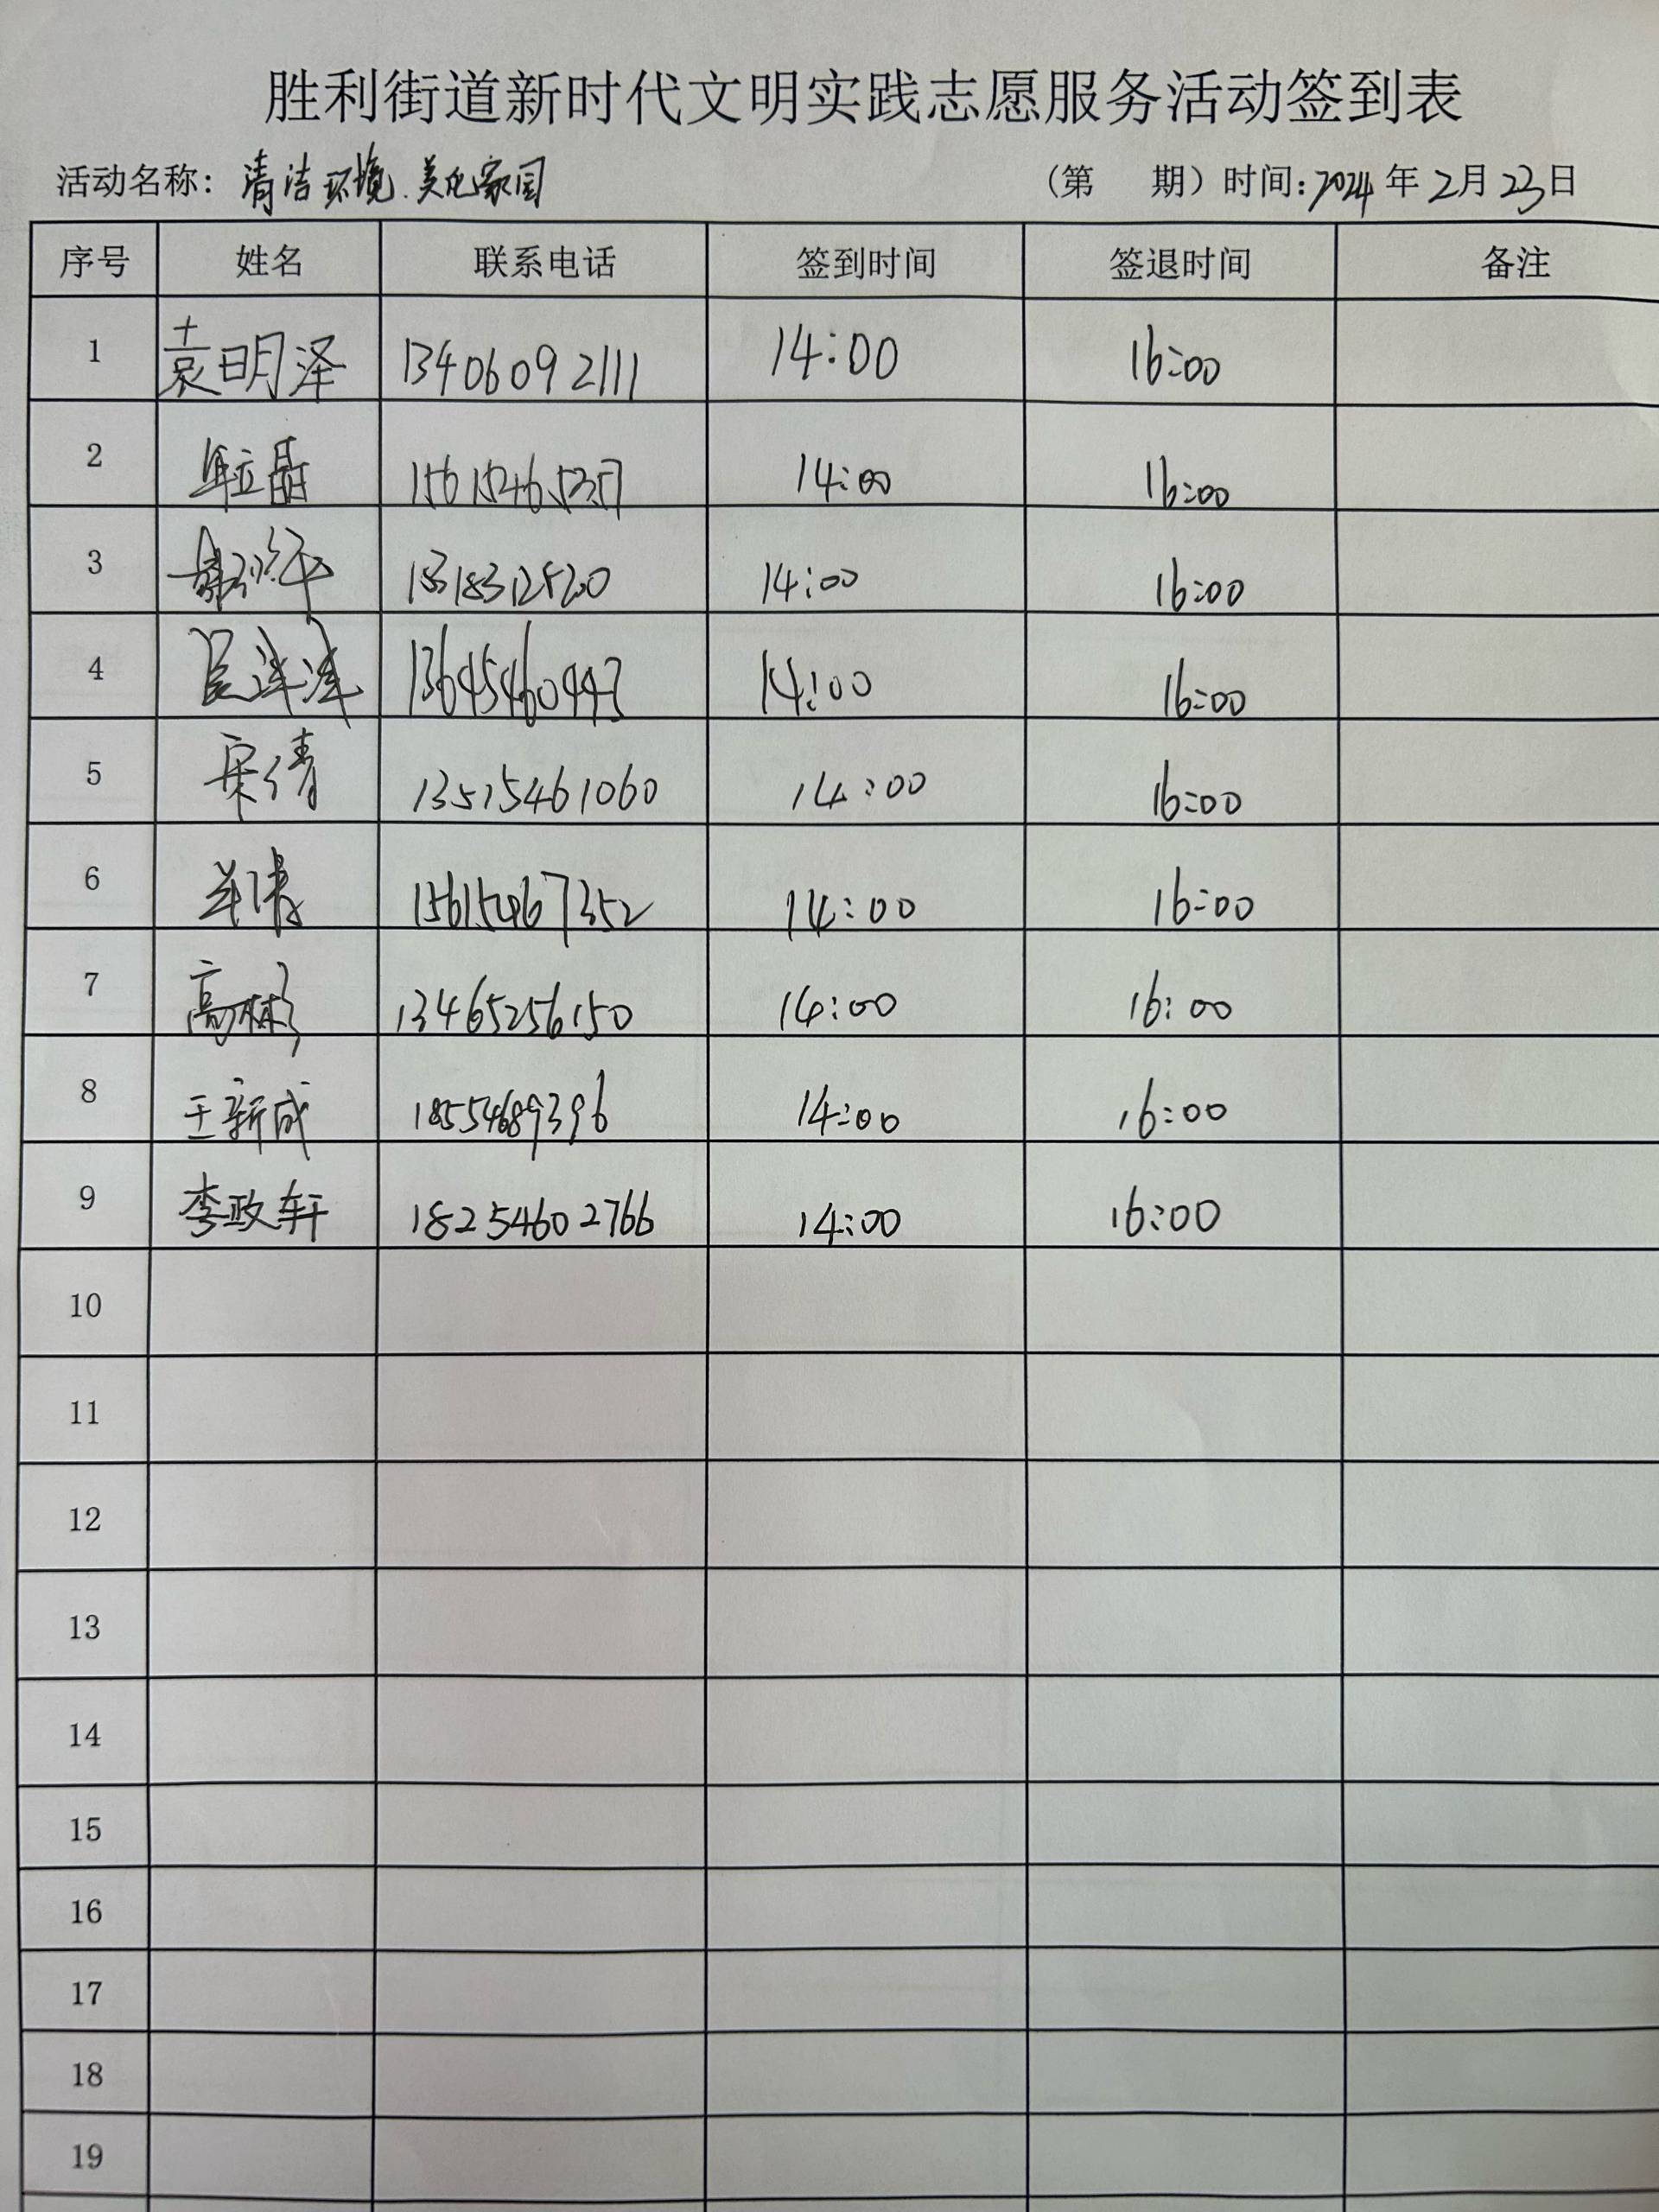 胜利街道新时代文明实践志愿服务活动签到表
活动名称: 清洁环境.美化家园 (第 期) 时间: 2024 年 2月 23日
序号 姓名 联系电话 签到时间 签退时间 备注
1 袁明泽 13406092111 14:00 16:00
2 晶 14:00 16:00
3 14:00 16:00
4 14:00 16:00
5 宋倩 13515461060 14:00 16:00
6 15615467352 14:00 16:00
7 高彬彬 13465256150 14:00 16:00
8 王新成 18554689396 14:00 16:00
9 李政轩 18254602766 14:00 16:00
10
11
12
13
14
15
16
17
18
19